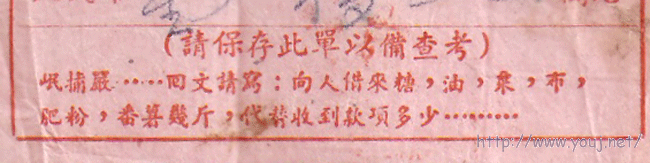 (請保存此單以備查考)
岷捕嚴……回文請寫:向人借來糖,油,米,布,
肥粉,番薯幾斤,代替收到款項多少………
http://www.youj.net/